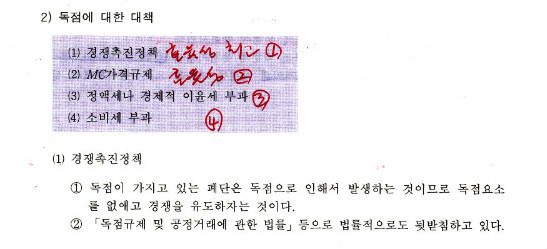 2) 독점에 대한 대책
(1) 경쟁촉진정책 효율성 최고 ①
(2) MC가격규제 효율성 ②
(3) 정액세나 경제적 이윤세 부과 ③
(4) 소비세 부과 ④
(1) 경쟁촉진정책
① 독점이 가지고 있는 폐단은 독점으로 인해서 발생하는 것이므로 독점요소
를 없애고 경쟁을 유도하자는 것이다.
② 「독점규제 및 공정거래에 관한 법률」 등으로 법률적으로도 뒷받침하고 있다.